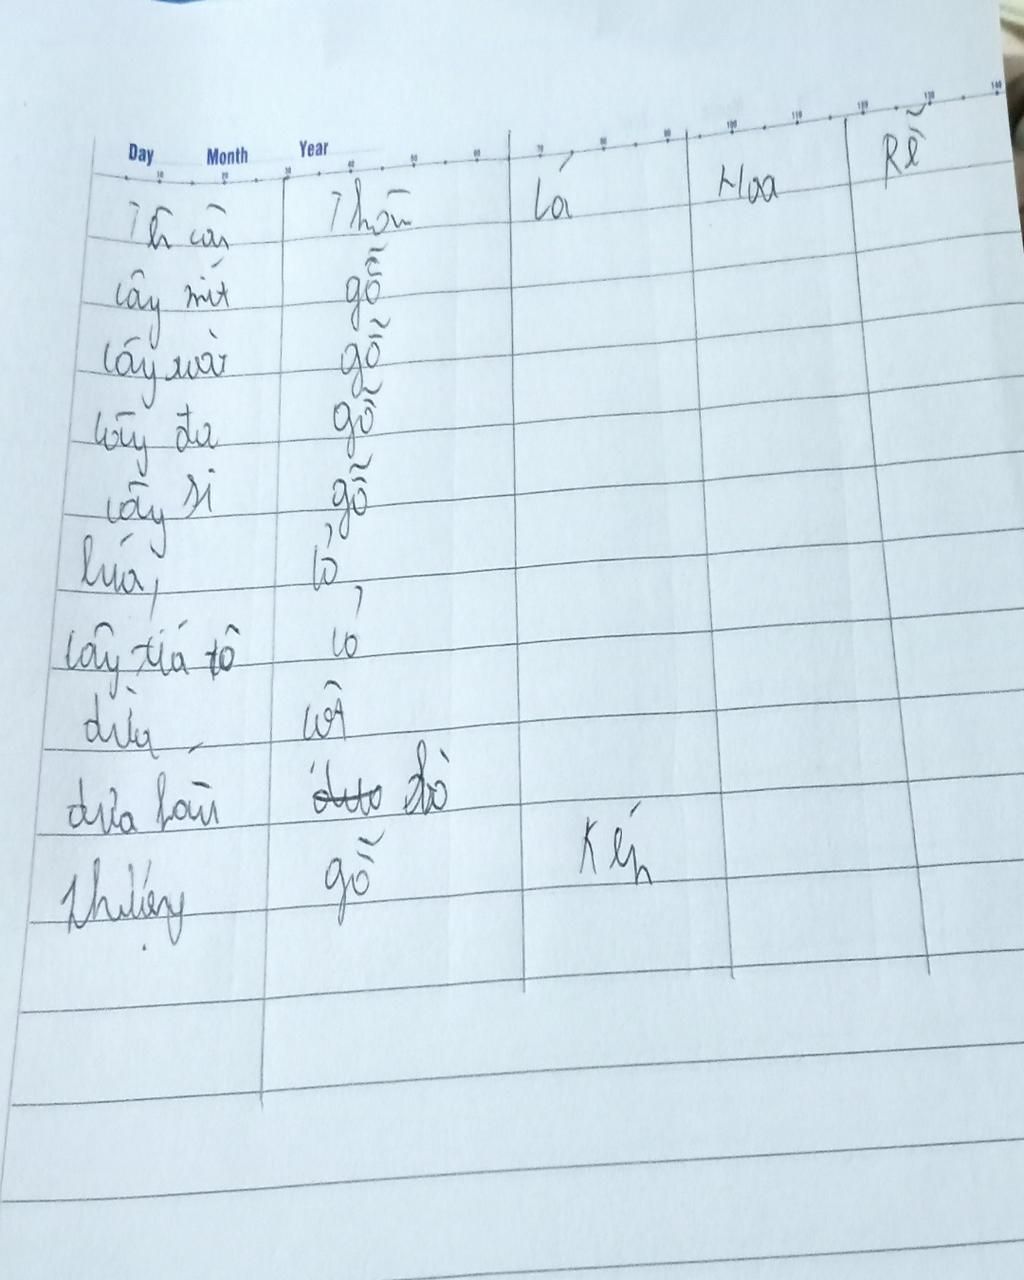 Day Month Year
Thân Lá Hoa Rễ
cây mít gỗ
cây xoài gỗ
cây đa gỗ
cây si gỗ
lúa, cỏ
cây tía tô cỏ
dừa cột
dưa hấu bò
gỗ Kép